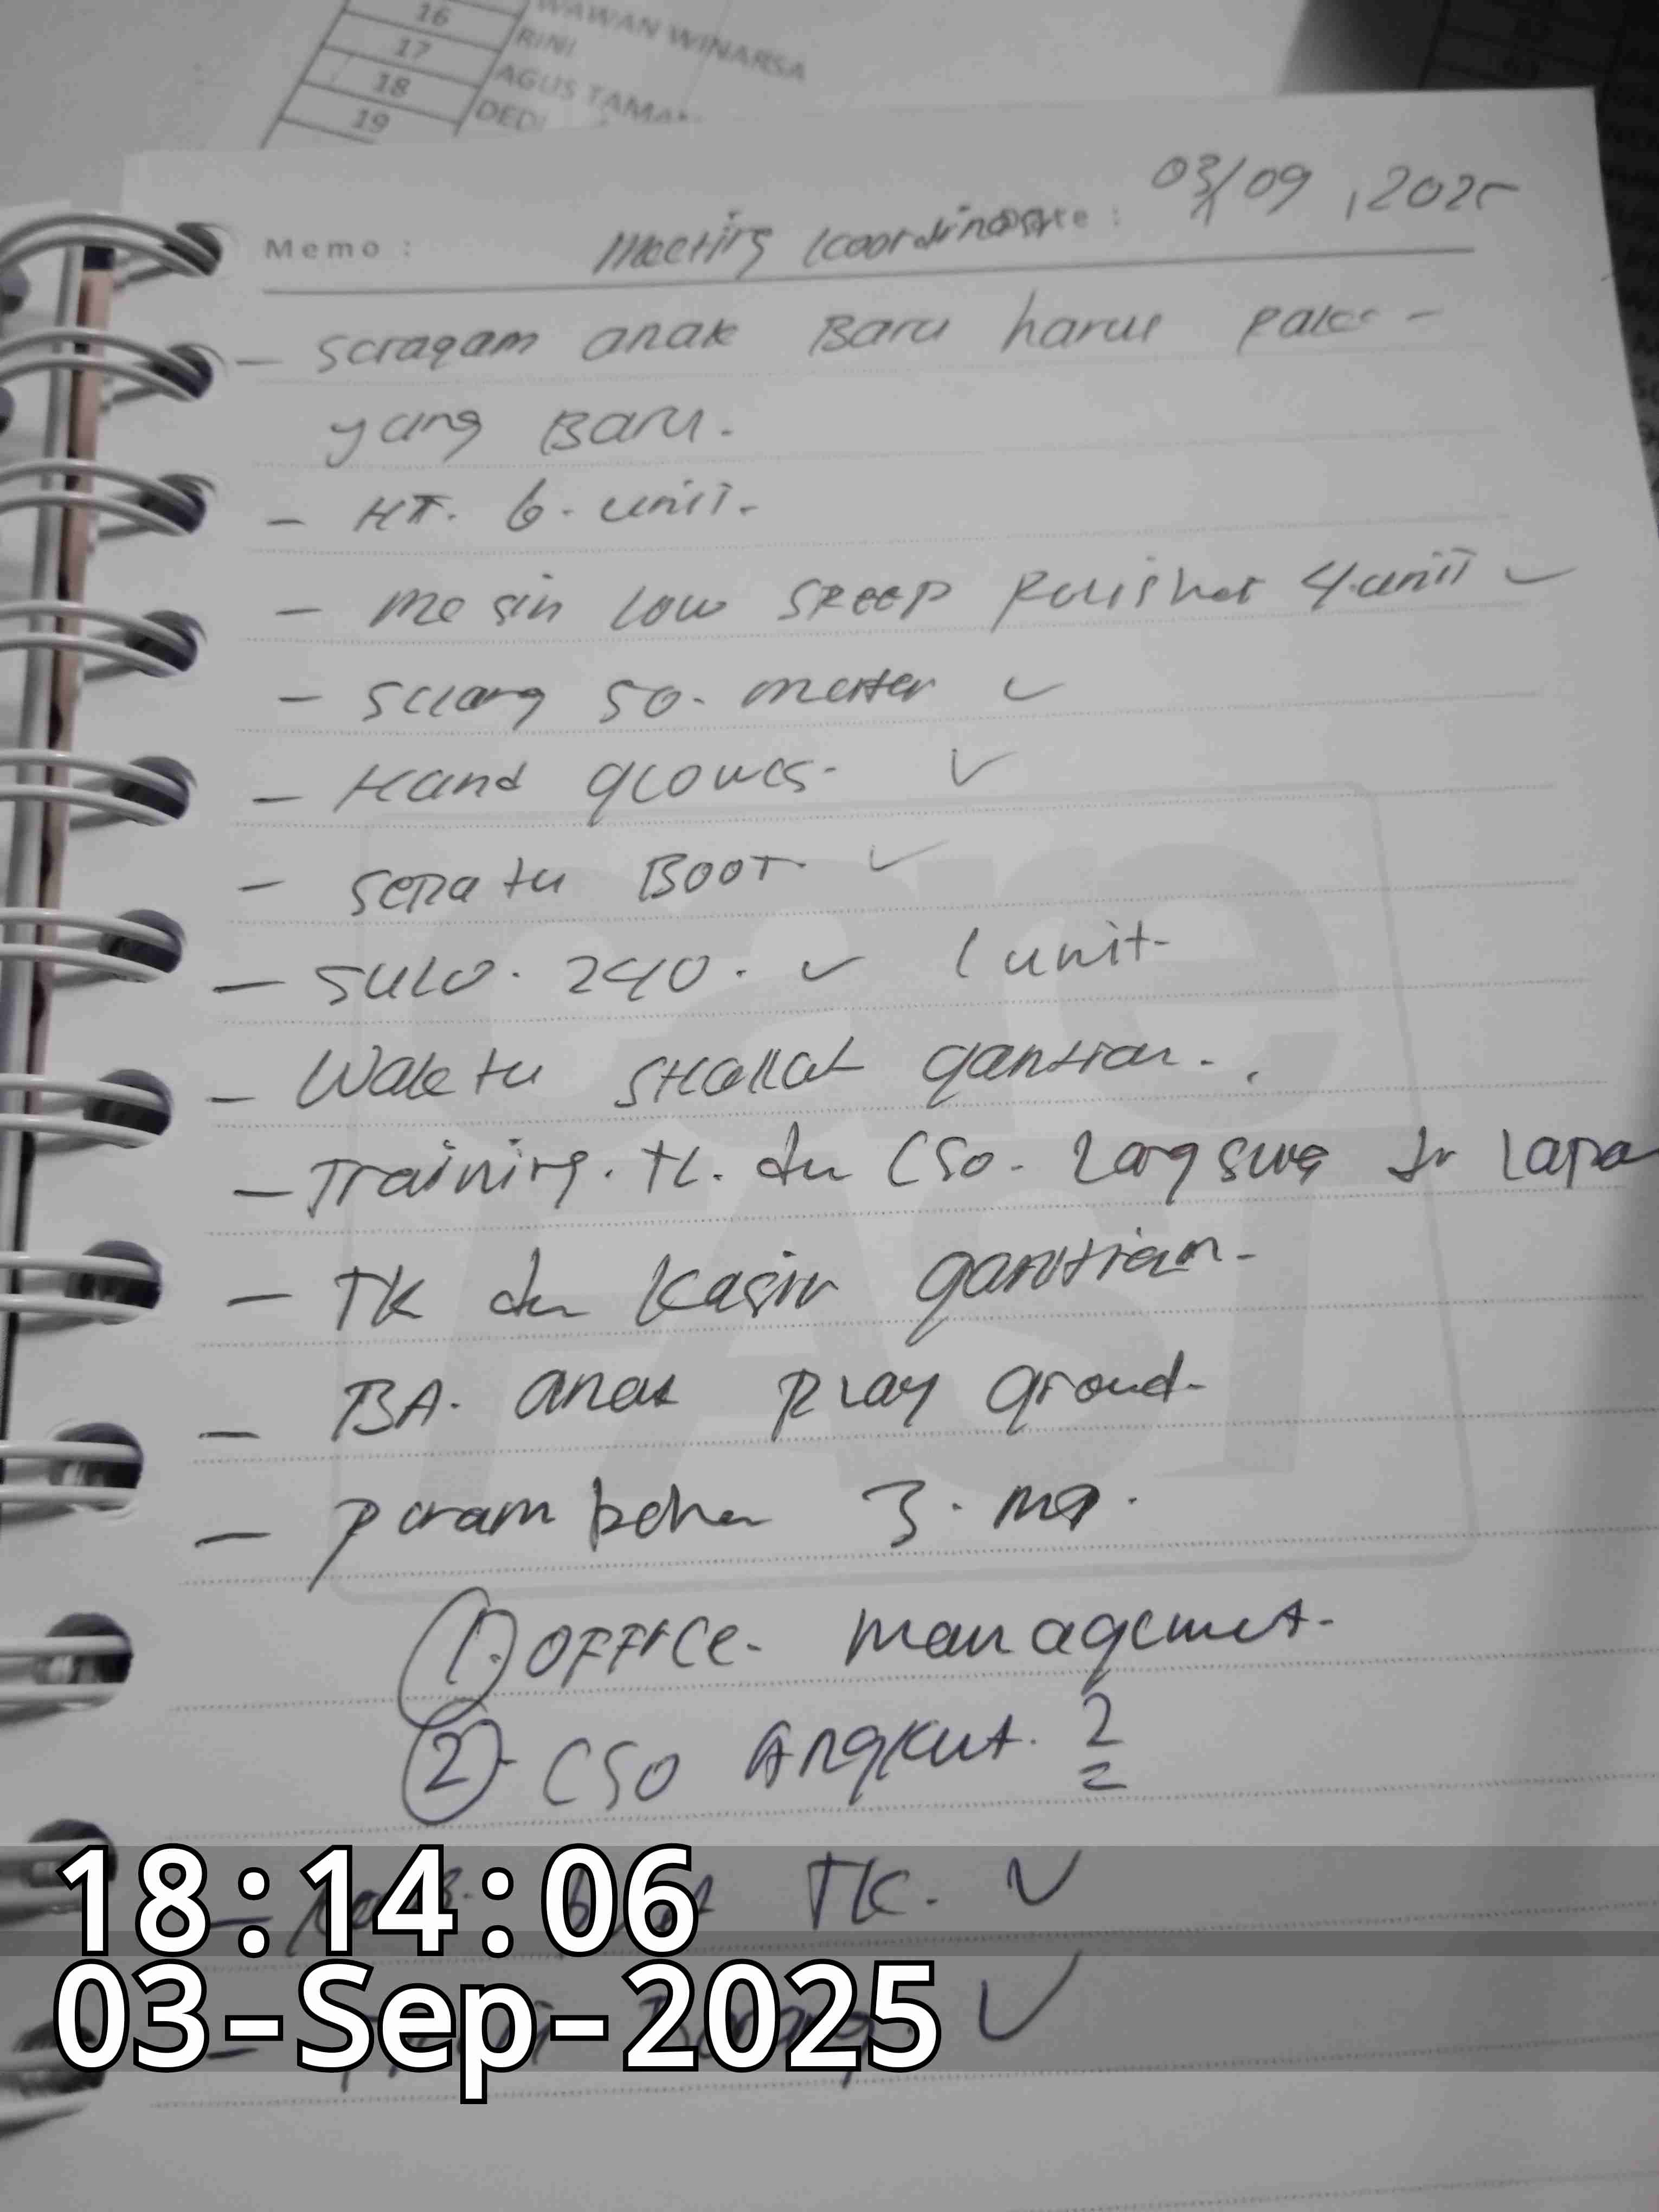 16 WAWAN WINARSA
17 RINI
18 AGUS TAMA
19 DEDI
03/09, 2025
Memo : Meeting Koordinasi
- Seragam anak Baru harus pake -
yang Baru.
- HT. 6. unit.
- Mesin Low SPEEP Polisher 4.unit ✓
- Selang 50. meter ✓
- Hand gloves. ✓
- Sepatu BOOT. ✓
- SULO. 240. ✓ 1 unit-
- Waktu SHallat gantian.
- Training. TL. dn CSO. Langsung dr Lapa
- TK dn Kasir gantian.
- BA. anak Play Groud-
- 3.
1. OFFICE. Management.
2. CSO Angkut. 2
- TK. ✓
- ✓
care
FAST
18:14:06
03-Sep-2025